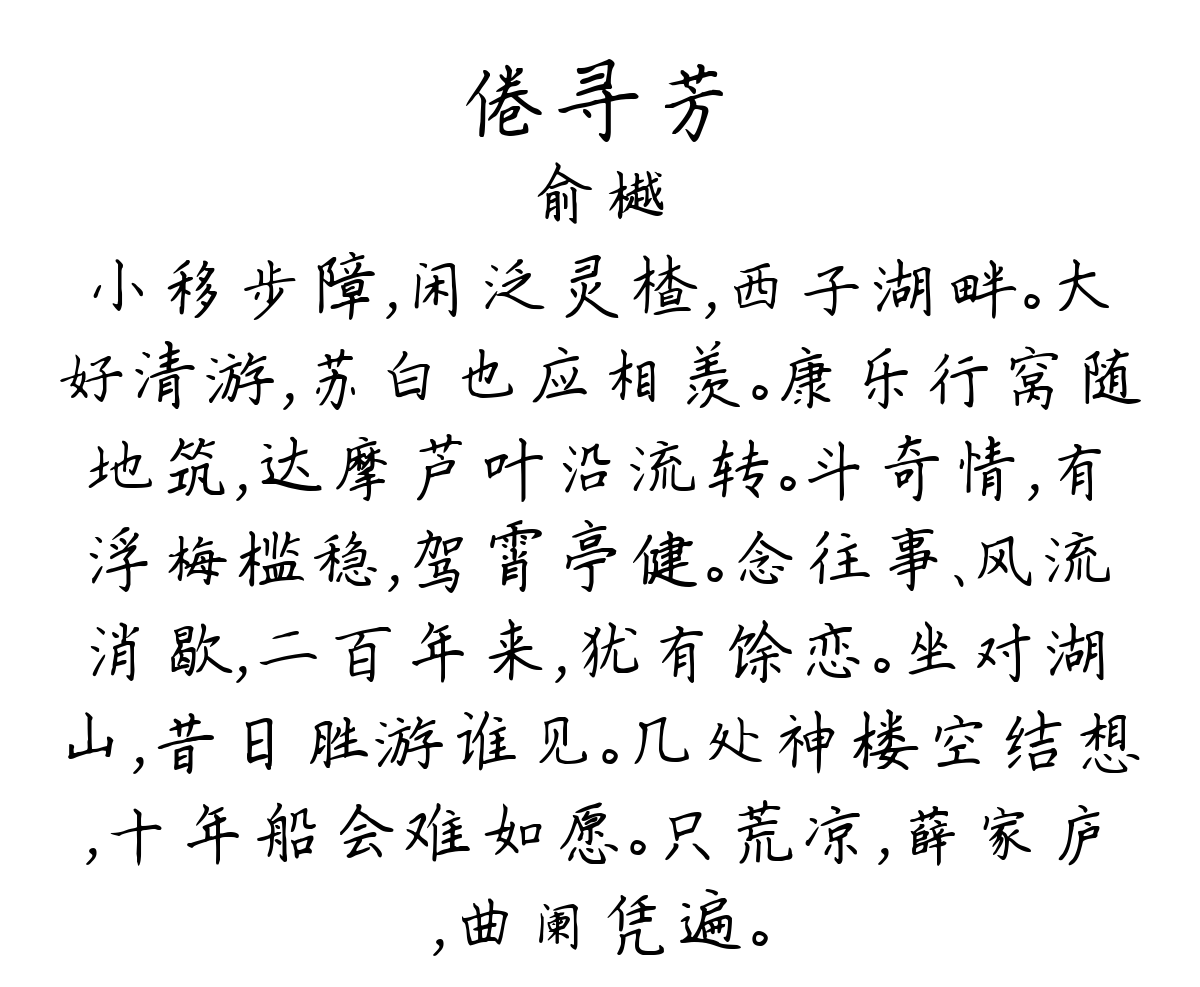 倦寻芳
俞樾
小移步障,闲泛灵楂,西子湖畔。大
好清游,苏白也应相羡。康乐行窝随
地筑,达摩芦叶沿流转。斗奇情,有
浮梅槛稳,驾霄亭健。念往事、风流
消歇,二百年来,犹有馀恋。坐对湖
山,昔日胜游谁见。几处神楼空结想
,十年船会难如愿。只荒凉,薛家庐
,曲阑凭遍。